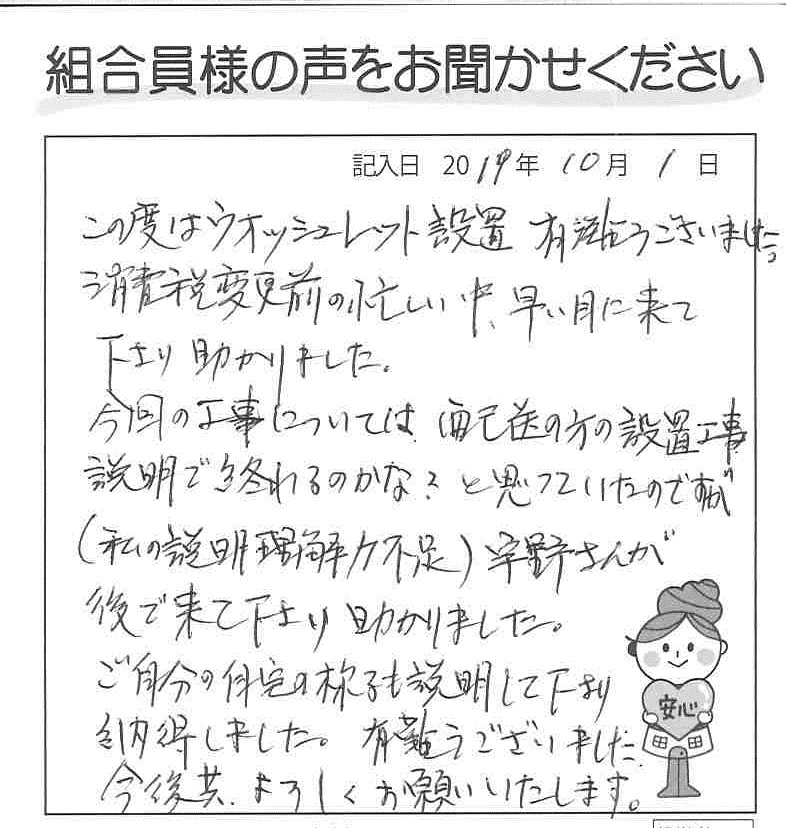 組合員様の声をお聞かせください
記入日 2019年 10月 1日
この度はウオッシュレット設置 有難うございました。
消費税変更前の忙しい中、早い目に来て
下さり助かりました。
今回の工事については、配送の方の設置工事
説明で終れるのかな?と思っていたのですが
(私の説明理解力不足)宇野さんが
後で来て下さり助かりました。
ご自分の自宅の様子も説明して下さり
納得しました。有難うございました。
今後共、よろしくお願いいたします。
安心